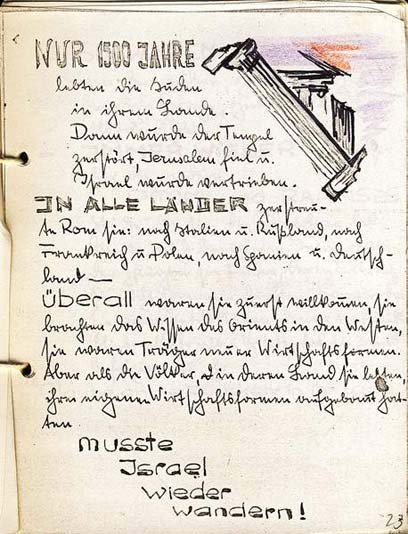 NUR 1500 JAHRE
lebten die Juden
in ihrem Lande.
Dann wurde der Tempel
zerstört, Jerusalem fiel u.
Israel wurde vertrieben.
IN ALLE LÄNDER zerstreu-
te Rom sie: nach Italien u. Rußland, nach
Frankreich u. Polen, nach Spanien u. Deutsch-
land —
Überall waren sie zuerst willkommen, sie
brachten das Wissen des Orients in den Westen,
sie waren Träger neuer Wirtschaftsformen.
Aber als die Völker, in deren Land sie lebten,
ihre eigenen Wirtschaftsformen aufgebaut hat-
ten
musste
Israel
wieder
wandern!
23